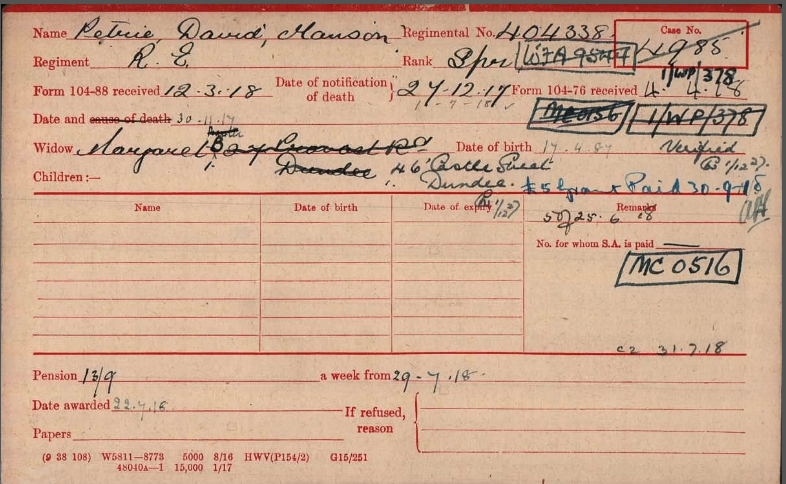 Name Petrie, David, Manson Regimental No. 404338 Case No.
4985
Regiment R. E. Rank Spr WFA 9544
1/WP/378
Form 104-88 received 12.3.18 Date of notification of death } 27-12.17 Form 104-76 received 4. 4.18
1-7-18
MC0136 1/WP/378
Date and cause of death 30.11.17
Widow Margaret B 27 Provost Rd Date of birth 17.4.87 Verified
Dundee 46 Castle Street
Children:— Dundee. £5 grant Paid 30-9-18
Name Date of birth Date of expiry Remarks
5/- of 25.6.18
No. for whom S.A. is paid —
MC 0516
C2 31.7.18
Pension 13/9 a week from 29-7.18.
Date awarded 22.7.18
If refused, reason
Papers
(9 38 108) W5811—8773 5000 8/16 HWV(P154/2) G15/251
48040A—1 15,000 1/17